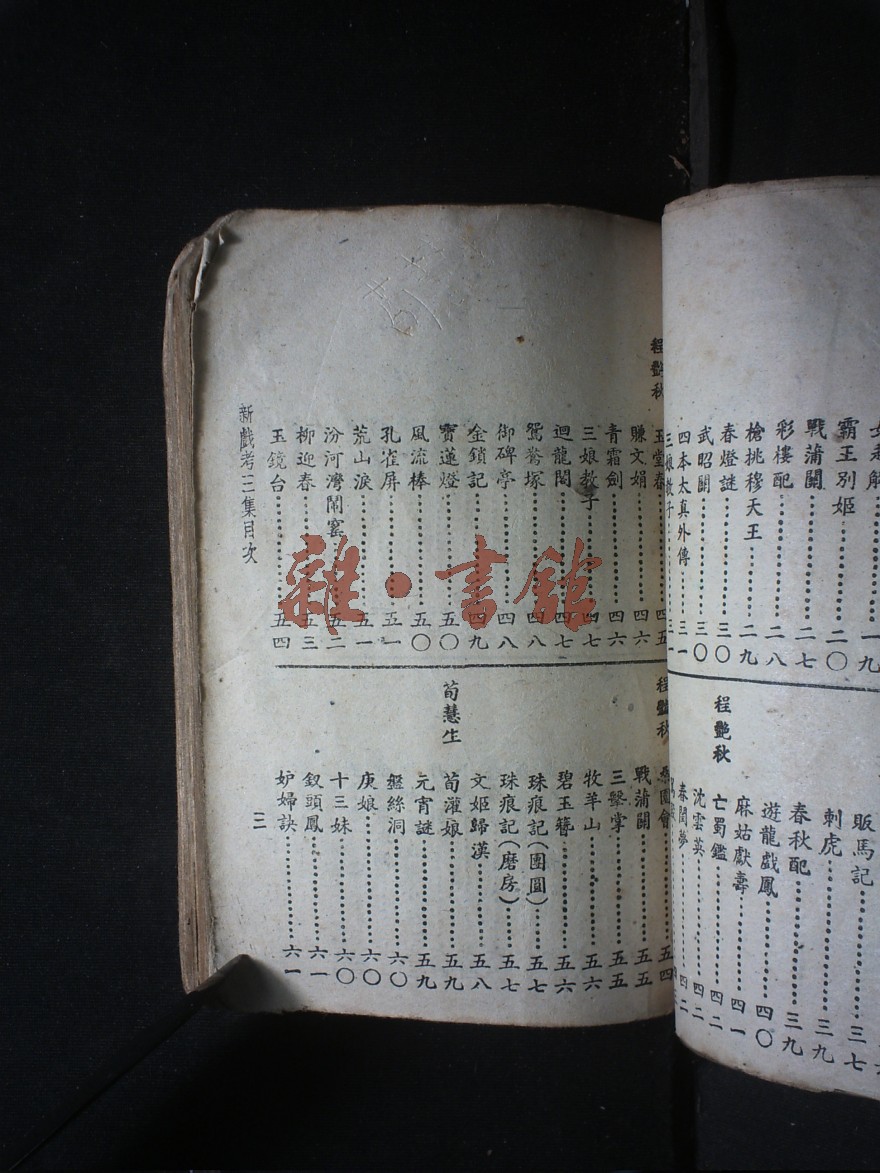 霸王別姬 二〇
戰蒲關 二七
彩樓配 二八
槍挑穆天王 二九
春燈謎 三〇
武昭關 三〇
四本太真外傳 三一
三娘教子
販馬記 三七
刺虎 三九
春秋配 三九
遊龍戲鳳 四〇
麻姑獻壽 四一
程艷秋
亡蜀鑑 四二
沈雲英 四二
春閨夢 四二
程艷秋
玉堂春 四五
賺文娟 四六
青霜劍 四六
三娘教子 四七
迴龍閣 四七
鴛鴦塚 四八
御碑亭 四八
金鎖記 四九
寶蓮燈 五〇
風流棒 五〇
孔雀屏 五一
荒山淚 五一
汾河灣鬧窰 五二
柳迎春 五三
玉鏡台 五四
程艷秋
桑園會 五四
戰蒲關 五五
三擊掌 五五
牧羊山 五六
碧玉簪 五六
珠痕記(團圓) 五七
珠痕記(磨房) 五七
文姬歸漢 五八
荀慧生
荀灌娘 五九
元宵謎 五九
盤絲洞 六〇
庚娘 六〇
十三妹 六〇
釵頭鳳 六一
妒婦訣 六一
新戲考三集目次
三
雜·書館